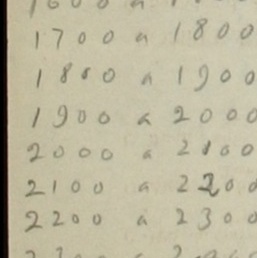 1600 a 1700
1700 a 1800
1800 a 1900
1900 a 2000
2000 a 2100
2100 a 2200
2200 a 2300